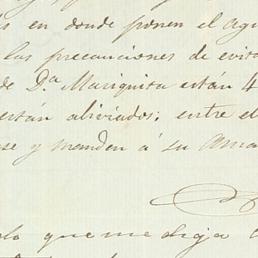 en donde ponen el Agu
las precauciones de evita
de D.ª Mariquita están 4
están aliviados; entre el
se y manden á su Ama
lo que me diga